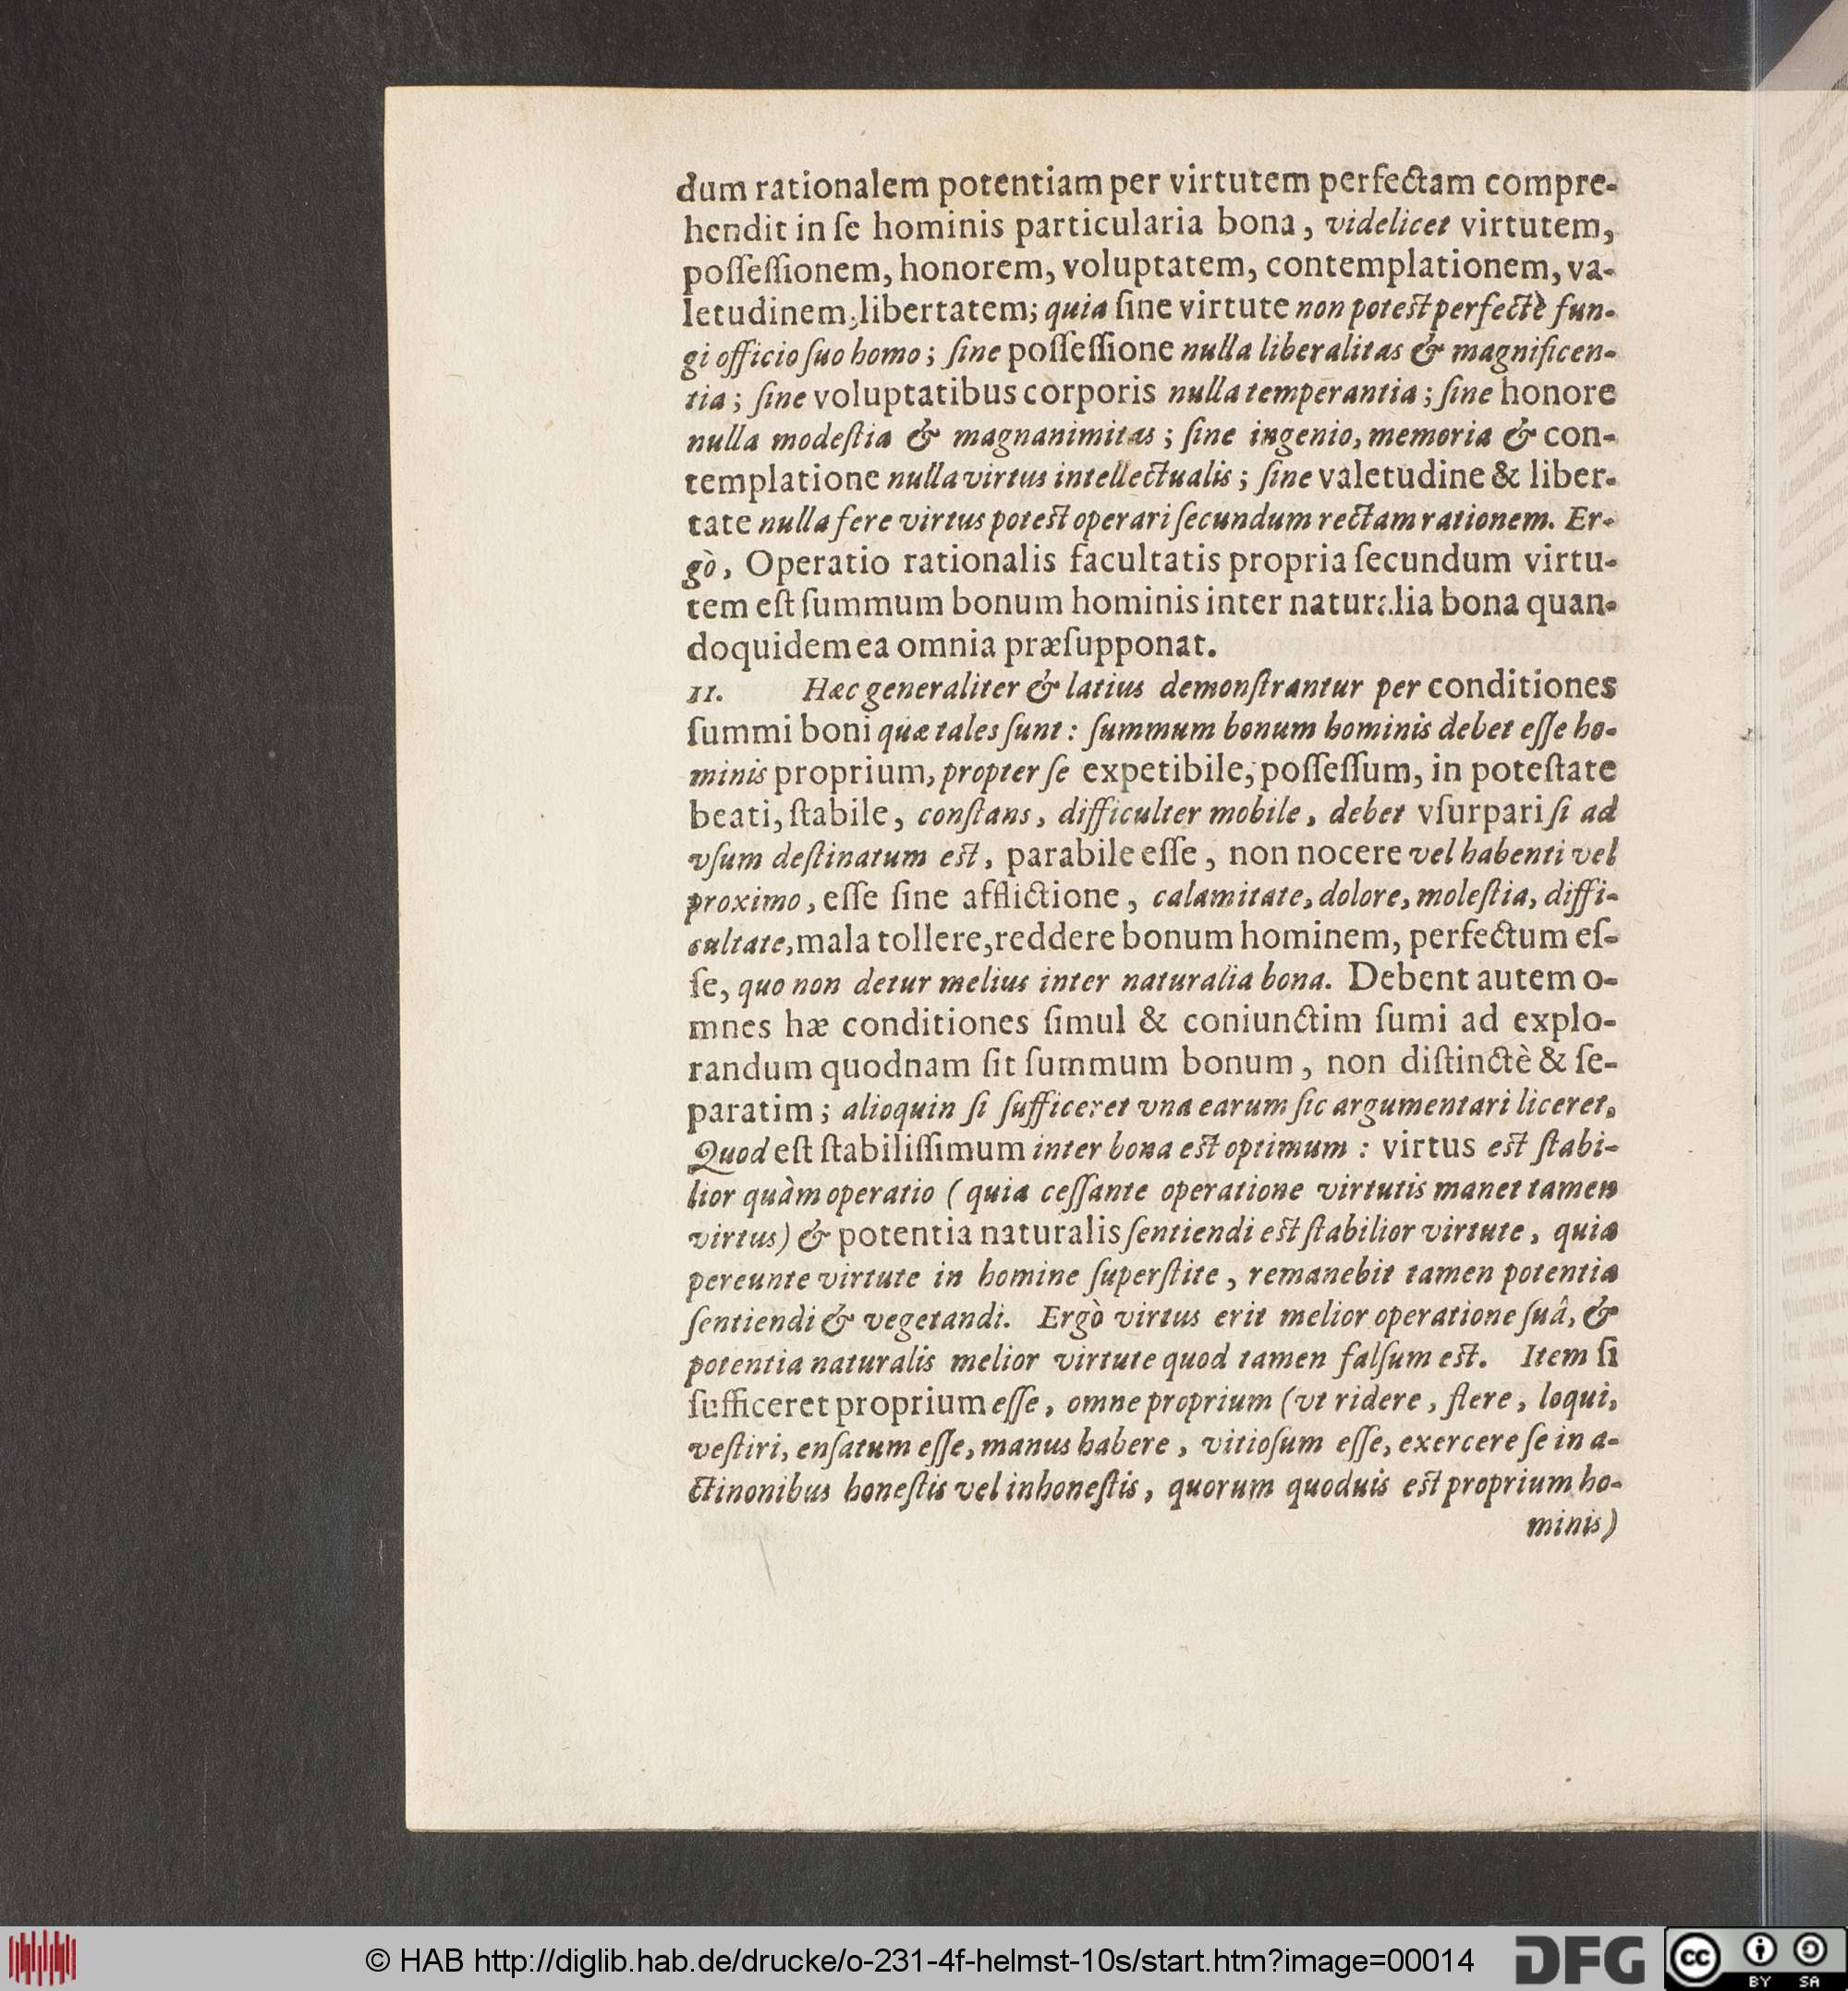 dum rationalem potentiam per virtutem perfectam compre-
hendit in ſe hominis particularia bona, videlicet virtutem,
poſſeſſionem, honorem, voluptatem, contemplationem, va-
letudinem, libertatem; quia ſine virtute non poteſt perfectè fun-
gi officio ſuo homo; ſine poſſeſſione nulla liberalitas & magnificen-
tia; ſine voluptatibus corporis nulla temperantia; ſine honore
nulla modeſtia & magnanimitas; ſine ingenio, memoria & con-
templatione nulla virtus intellectualis; ſine valetudine & liber-
tate nulla fere virtus poteſt operari ſecundum rectam rationem. Er-
gò, Operatio rationalis facultatis propria ſecundum virtu-
tem eſt ſummum bonum hominis inter naturalia bona quan-
doquidem ea omnia præſupponat.
11. Hæc generaliter & latius demonſtrantur per conditiones
ſummi boni quæ tales ſunt: ſummum bonum hominis debet eſſe ho-
minis proprium, propter ſe expetibile, poſſeſſum, in poteſtate
beati, ſtabile, conſtans, difficulter mobile, debet vſurpari ſi ad
vſum deſtinatum eſt, parabile eſſe, non nocere vel habenti vel
proximo, eſſe ſine afflictione, calamitate, dolore, moleſtia, diffi-
cultate, mala tollere, reddere bonum hominem, perfectum eſ-
ſe, quo non detur melius inter naturalia bona. Debent autem o-
mnes hæ conditiones ſimul & coniunctim ſumi ad explo-
randum quodnam ſit ſummum bonum, non diſtinctè & ſe-
paratim; alioquin ſi ſufficeret vna earum ſic argumentari liceret.
Quod eſt ſtabiliſſimum inter bona eſt optimum: virtus eſt ſtabi-
lior quàm operatio (quia ceſſante operatione virtutis manet tamen
virtus) & potentia naturalis ſentiendi eſt ſtabilior virtute, quia
pereunte virtute in homine ſuperſtite, remanebit tamen potentia
ſentiendi & vegetandi. Ergò virtus erit melior operatione ſuâ, &
potentia naturalis melior virtute quod tamen falſum eſt. Item ſi
ſufficeret proprium eſſe, omne proprium (vt ridere, flere, loqui,
veſtiri, enſatum eſſe, manus habere, vitioſum eſſe, exercere ſe in a-
ctinonibus honeſtis vel inhoneſtis, quorum quoduis eſt proprium ho-
minis)
© HAB http://diglib.hab.de/drucke/o-231-4f-helmst-10s/start.htm?image=00014
DFG
cc BY SA